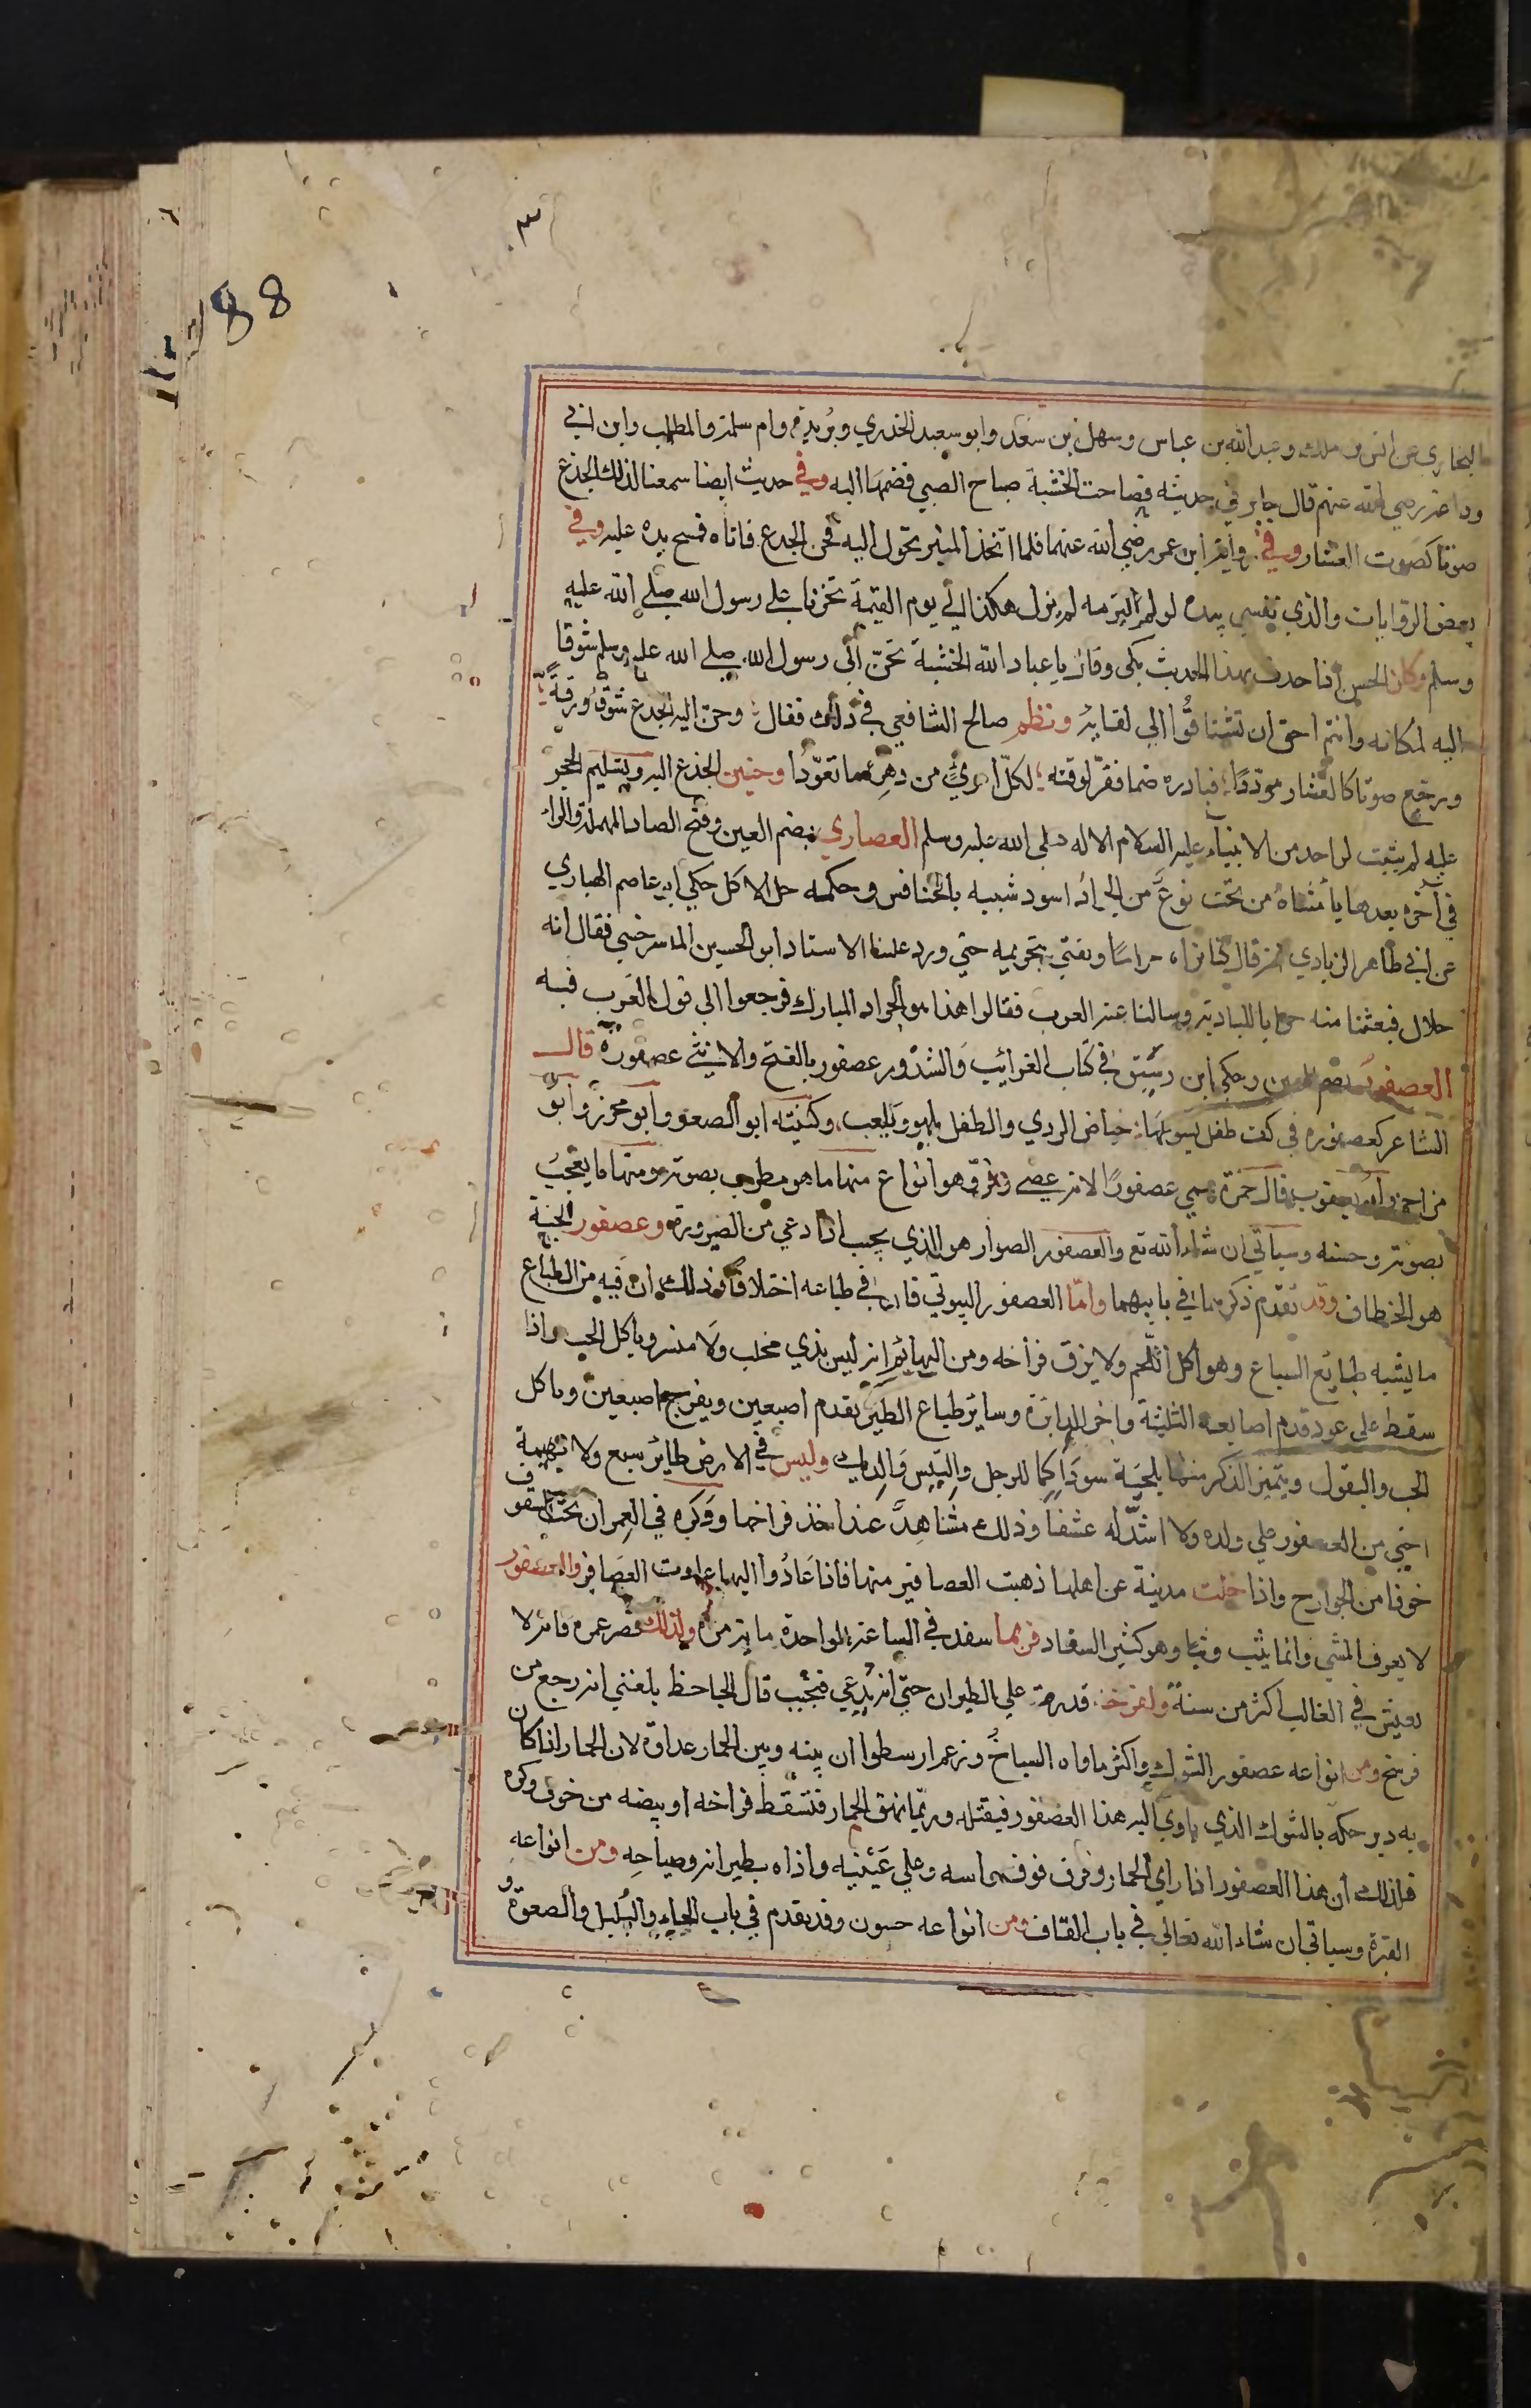 ٣
88
البخاري عن انس بن ملك وعبد الله بن عباس وسهل بن سعد وابو سعيد الخدري وبريدة وام سلمة والمطلب وابن ابي
وداعة رضي الله عنهم قال جابر في حديثه فصاحت الخشبة صياح الصبي فضمها اليه وفي حديث ايضا سمعنا لذلك الجذع
صوتا كصوت العشار وفي رواية ابن عمر رضي الله عنهما فلما اتخذ المنبر تحول اليه فحن الجدع فاتاه فمسح يده عليه وفي
بعض الروايات والذي نفسي بيده لو لم التزمه لم يزل هكذا الي يوم القيمة تحزنا علي رسول الله صلي الله عليه
وسلم وكان الحسن اذا حدث بهذا الحديث بكى وقال يا عباد الله الخشبة تحنّ الي رسول الله صلي الله عليه وسلم شوقا
اليه لمكانه وانتم احق ان تشتاقوا الي لقايه ونظم صالح الشافعي في ذلك فقال وحن اليه الجدع شوقا ورقة
ورجع صوتا كالعشار مرددا فبادره ضما فقرّ لوقته لكلّ امرئ من دهره ما تعوّدا وحنين الجذع اليه وتسليم الحجر
عليه لم يثبت لواحد من الانبياء عليه السلام الا له صلي الله عليه وسلم العصاري بضم العين وفتح الصاد المهملة والراء
في آخره بعدها يا مثناة من تحت نوع من الجراد اسود شبيه بالخنافس وحكمه حل الاكل حكي ابو عاصم الهباري
عن ابي طاهر الزيادي انه قال كنا نراه حراما ونفتي بتحريمه حتي ورد علينا الاستاد ابو الحسين المسرخسي فقال انه
حلال فبعثنا منه جرابا للبادية وسالنا عنه العرب فقالوا هذا هو الجراد المبارك فرجعوا الي قول العرب فيه
العصفور بضم العين وحكي ابن رشيق في كتاب الغرائب والشذور عصفور بالفتح والانثي عصفورة قال
الشاعر كعصفورة في كف طفل يسومها حياض الردي والطفل يلهو ويلعب وكنيته ابو الصعو وابو محرز وابو
مزاحم وابو يعقوب قال حمزة سمي عصفورا لانه عصي وفرّ وهو انواع منها ما هو مطرب بصوته ومنها ما يعجب
بصوته وحسنه وسياتي ان شاء الله تع والعصفور الصوار هو الذي يجيب اذا دعي من الصيرورة وعصفور الجنة
هو الخطاف وقد تقدم ذكرهما في بابيهما وامّا العصفور البيوتي فان في طباعه اختلافا وذلك ان فيه من الطباع
ما يشبه طبايع السباع وهو اكل اللحم ولا يزق فراخه ومن البهائم انه ليس بذي مخلب ولا منسر وياكل الحب واذا
سقط علي عود قدم اصابعه الثليثة واخر الدابرة وساير طباع الطير يقدم اصبعين ويفرج اصبعين وياكل
الحب والبقول ويتميز الذكر منها بلحية سوداء كما للرجل والتيس والديك وليس في الارض طائر سبع ولا بهيمة
احني من العصفور علي ولده ولا اشدّ له عشقا وذلك مشاهد عند اخذ فراخها ووكره في العمران تحت السقوف
خوفا من الجوارح واذا خلت مدينة عن اهلها ذهبت العصافير منها فاذا عادوا اليها عاودت العصافير والعصفور
لا يعرف المشي وانما يثب وثبا وهو كثير السفاد فربما سفد في الساعة الواحدة ماية مرة ولذلك قصر عمره فانه لا
يعيش في الغالب اكثر من سنة ولفرخه قدرة علي الطيران حتي انه يدعي فيجيب قال الجاحظ بلغني انه رجع من
فرسخ ومن انواعه عصفور الشوك واكثر ماواه السباخ وزعم ارسطوا ان بينه وبين الحمار عداوة لان الحمار اذا كان
به دبر حكه بالشوك الذي ياوي اليه هذا العصفور فيقتله وربّما نهق الحمار فتسقط فراخه او بيضه من خوف وكره
فلذلك ان هذا العصفور اذا راي الحمار رفرف فوق راسه وعلي عينيه واذاه بطيرانه وصياحه ومن انواعه
القبرة وسياتي ان شاء الله تعالي في باب القاف ومن انواعه حسون وقد تقدم في باب الحاء والبلبل والصعوة و